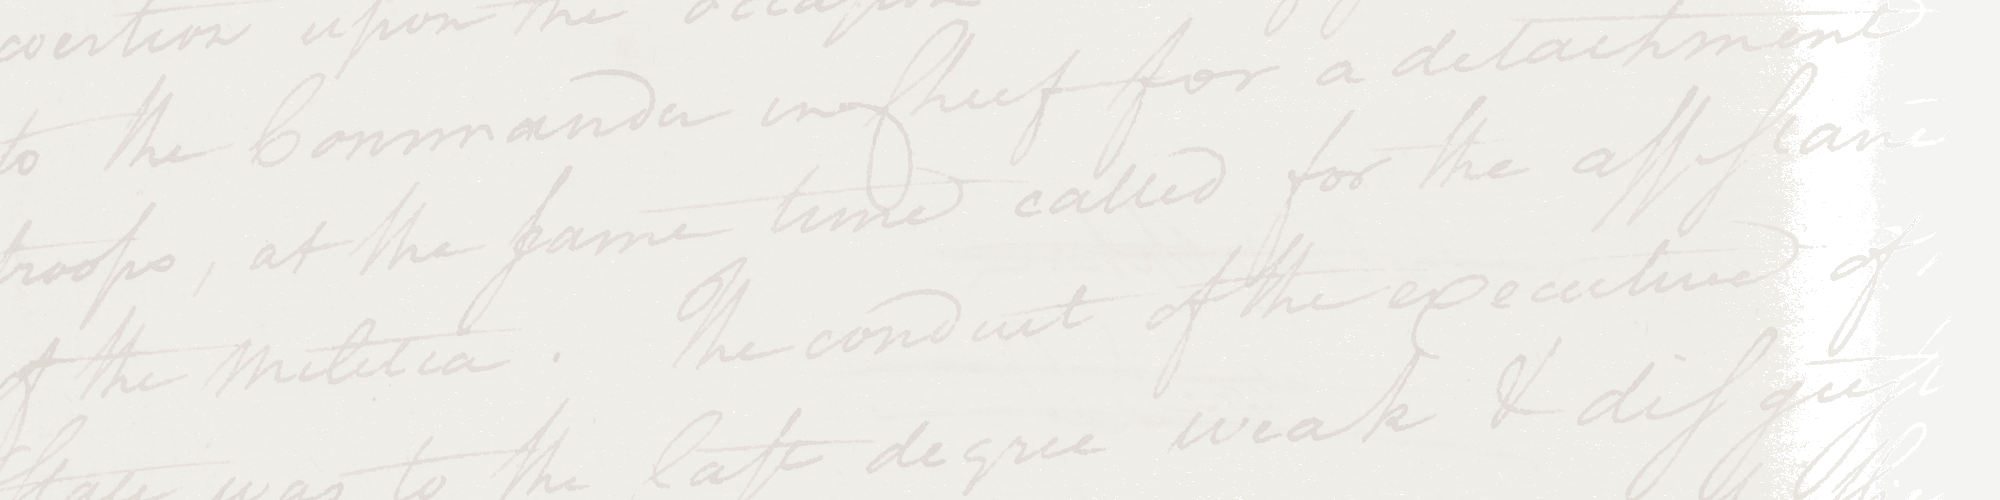 exertion upon the occasion
to the Commander in Cheif for a detachment
troops, at the same time called for the assistanc
of the militia. The conduct of the executive of
State was to the last degree weak & disgust